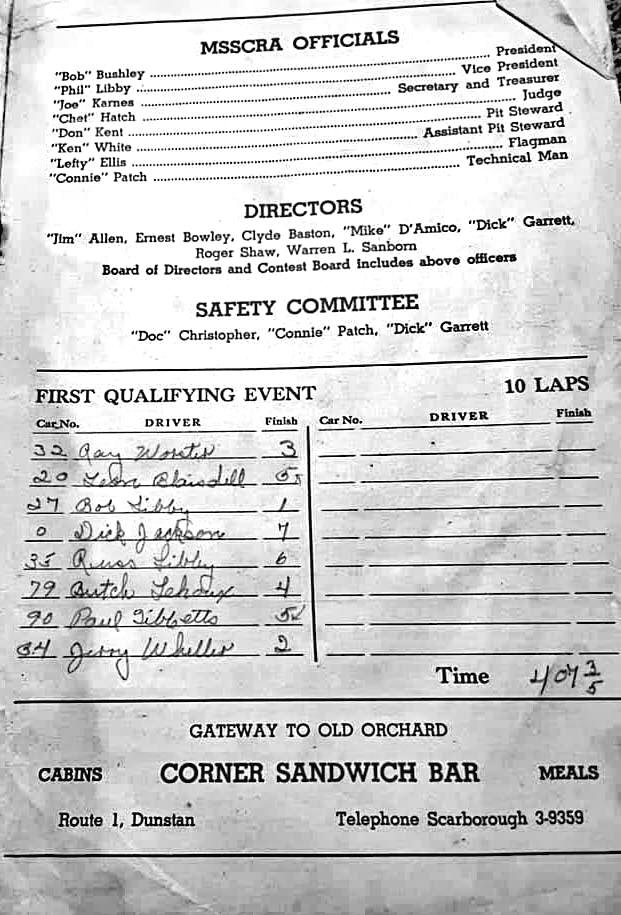 MSSCRA OFFICIALS
"Bob" Bushley ........ President
"Phil" Libby ........ Vice President
"Joe" Karnes ........ Secretary and Treasurer
"Chet" Hatch ........ Judge
"Don" Kent ........ Pit Steward
"Ken" White ........ Assistant Pit Steward
"Lefty" Ellis ........ Flagman
"Connie" Patch ........ Technical Man
DIRECTORS
"Jim" Allen, Ernest Bowley, Clyde Baston, "Mike" D'Amico, "Dick" Garrett,
Roger Shaw, Warren L. Sanborn
Board of Directors and Contest Board includes above officers
SAFETY COMMITTEE
"Doc" Christopher, "Connie" Patch, "Dick" Garrett
FIRST QUALIFYING EVENT 10 LAPS
Car No. DRIVER Finish Car No. DRIVER Finish
32 Ray Worster 3
20 Leon Blaisdell
27 Bob Libby 1
0 Dick Jackson 7
35 Russ Libby 6
79 Butch Lehoux 4
90 Paul Tibbetts 5
34 Jerry Wheller 2
Time 4 07 3/5
GATEWAY TO OLD ORCHARD
CABINS CORNER SANDWICH BAR MEALS
Route 1, Dunstan Telephone Scarborough 3-9359